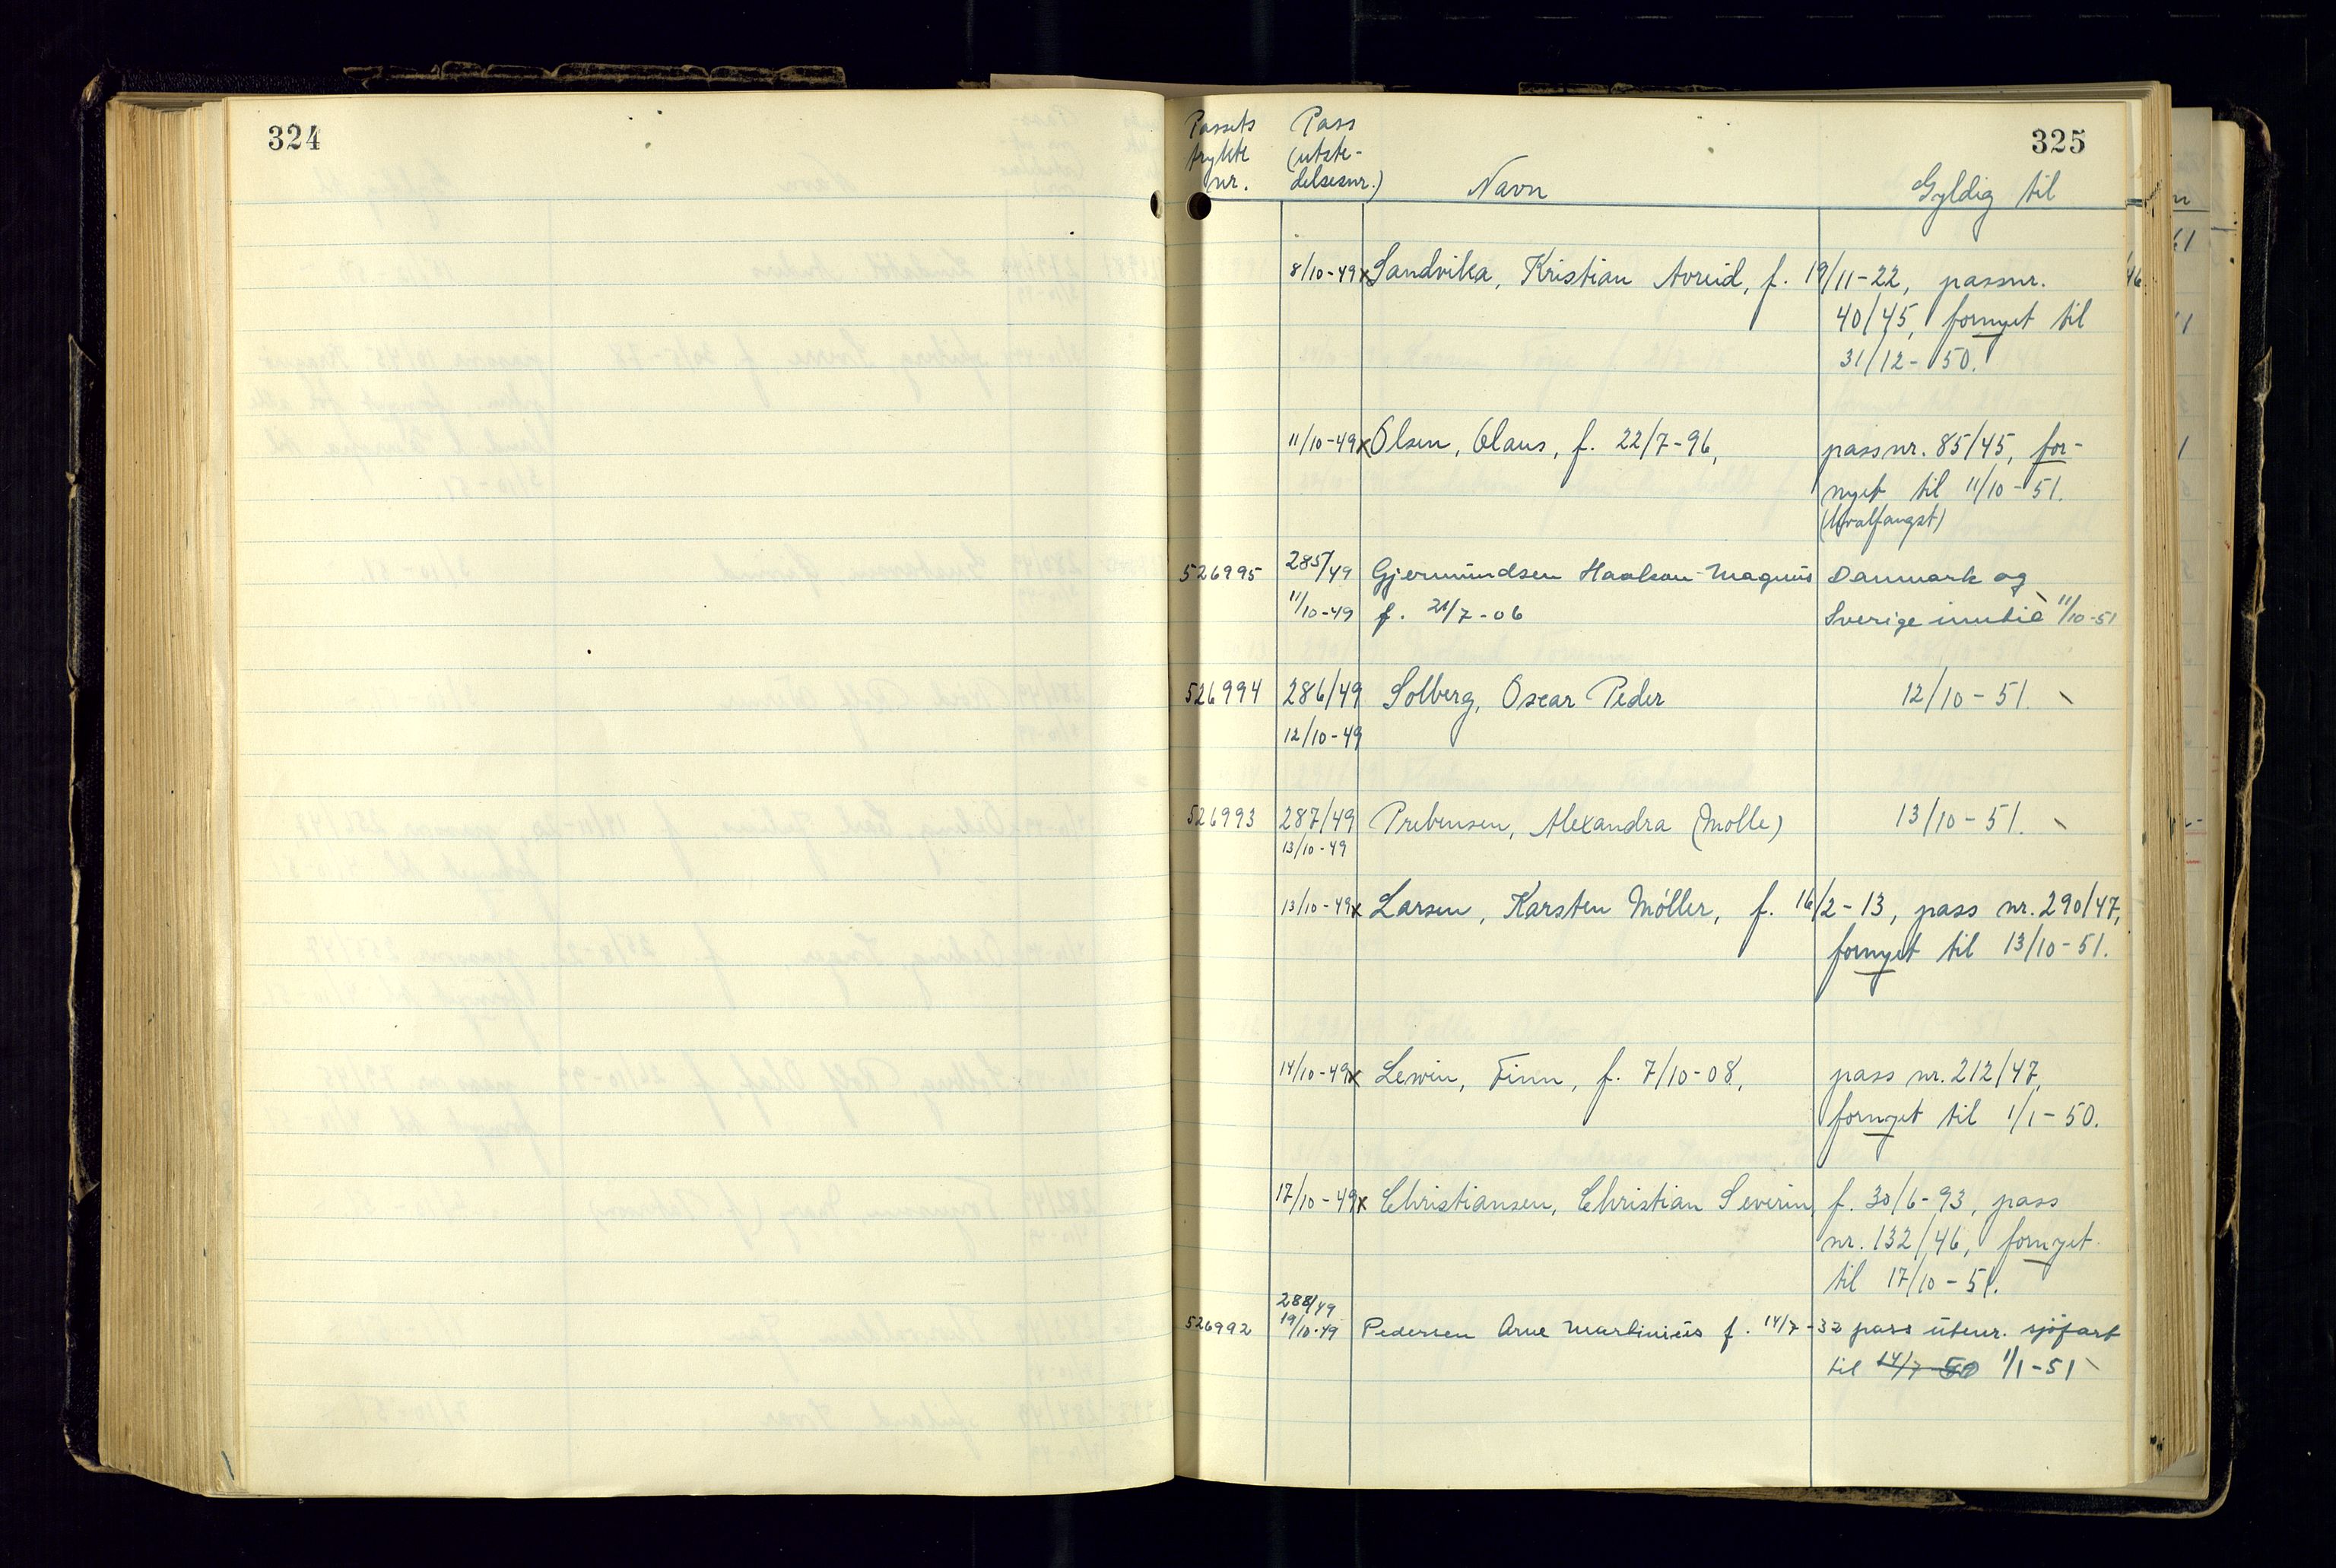 324
325
Passets trykte nr.
Pass (utste-delsesnr.)
Navn
Gyldig til
8/10-49 x Sandvika, Kristian Avreid, f. 19/11-22, passnr.
40/45, fornyet til
31/12-50.
11/10-49 x Olsen, Olaus, f. 22/7-96, passnr. 85/45, for-
nyet til 11/10-51.
(hvalfangst)
526995 285/49 Gjermundsen Haakon Magnus Danmark og
11/10-49 f. 21/7-06 Sverige 11/10-51
526994 286/49 Solberg, Oscar Peder 12/10-51.
12/10-49
526993 287/49 Prebensen, Alexandra (Molle) 13/10-51.
13/10-49
13/10-49 x Larsen, Karsten Möller, f. 16/2-13, pass nr. 290/47,
fornyet til 13/10-51.
14/10-49 x Lewin, Finn, f. 7/10-08, pass nr. 212/47,
fornyet til 1/1-50.
17/10-49 x Christiansen, Christian Severin, f. 30/6-93, pass
nr. 132/46, fornyet
til 17/10-51.
288/49
526992 19/10-49 Pedersen Arne Martinius f. 14/7-32 pass utenr. sjøfart
til 14/7-50 1/1-51